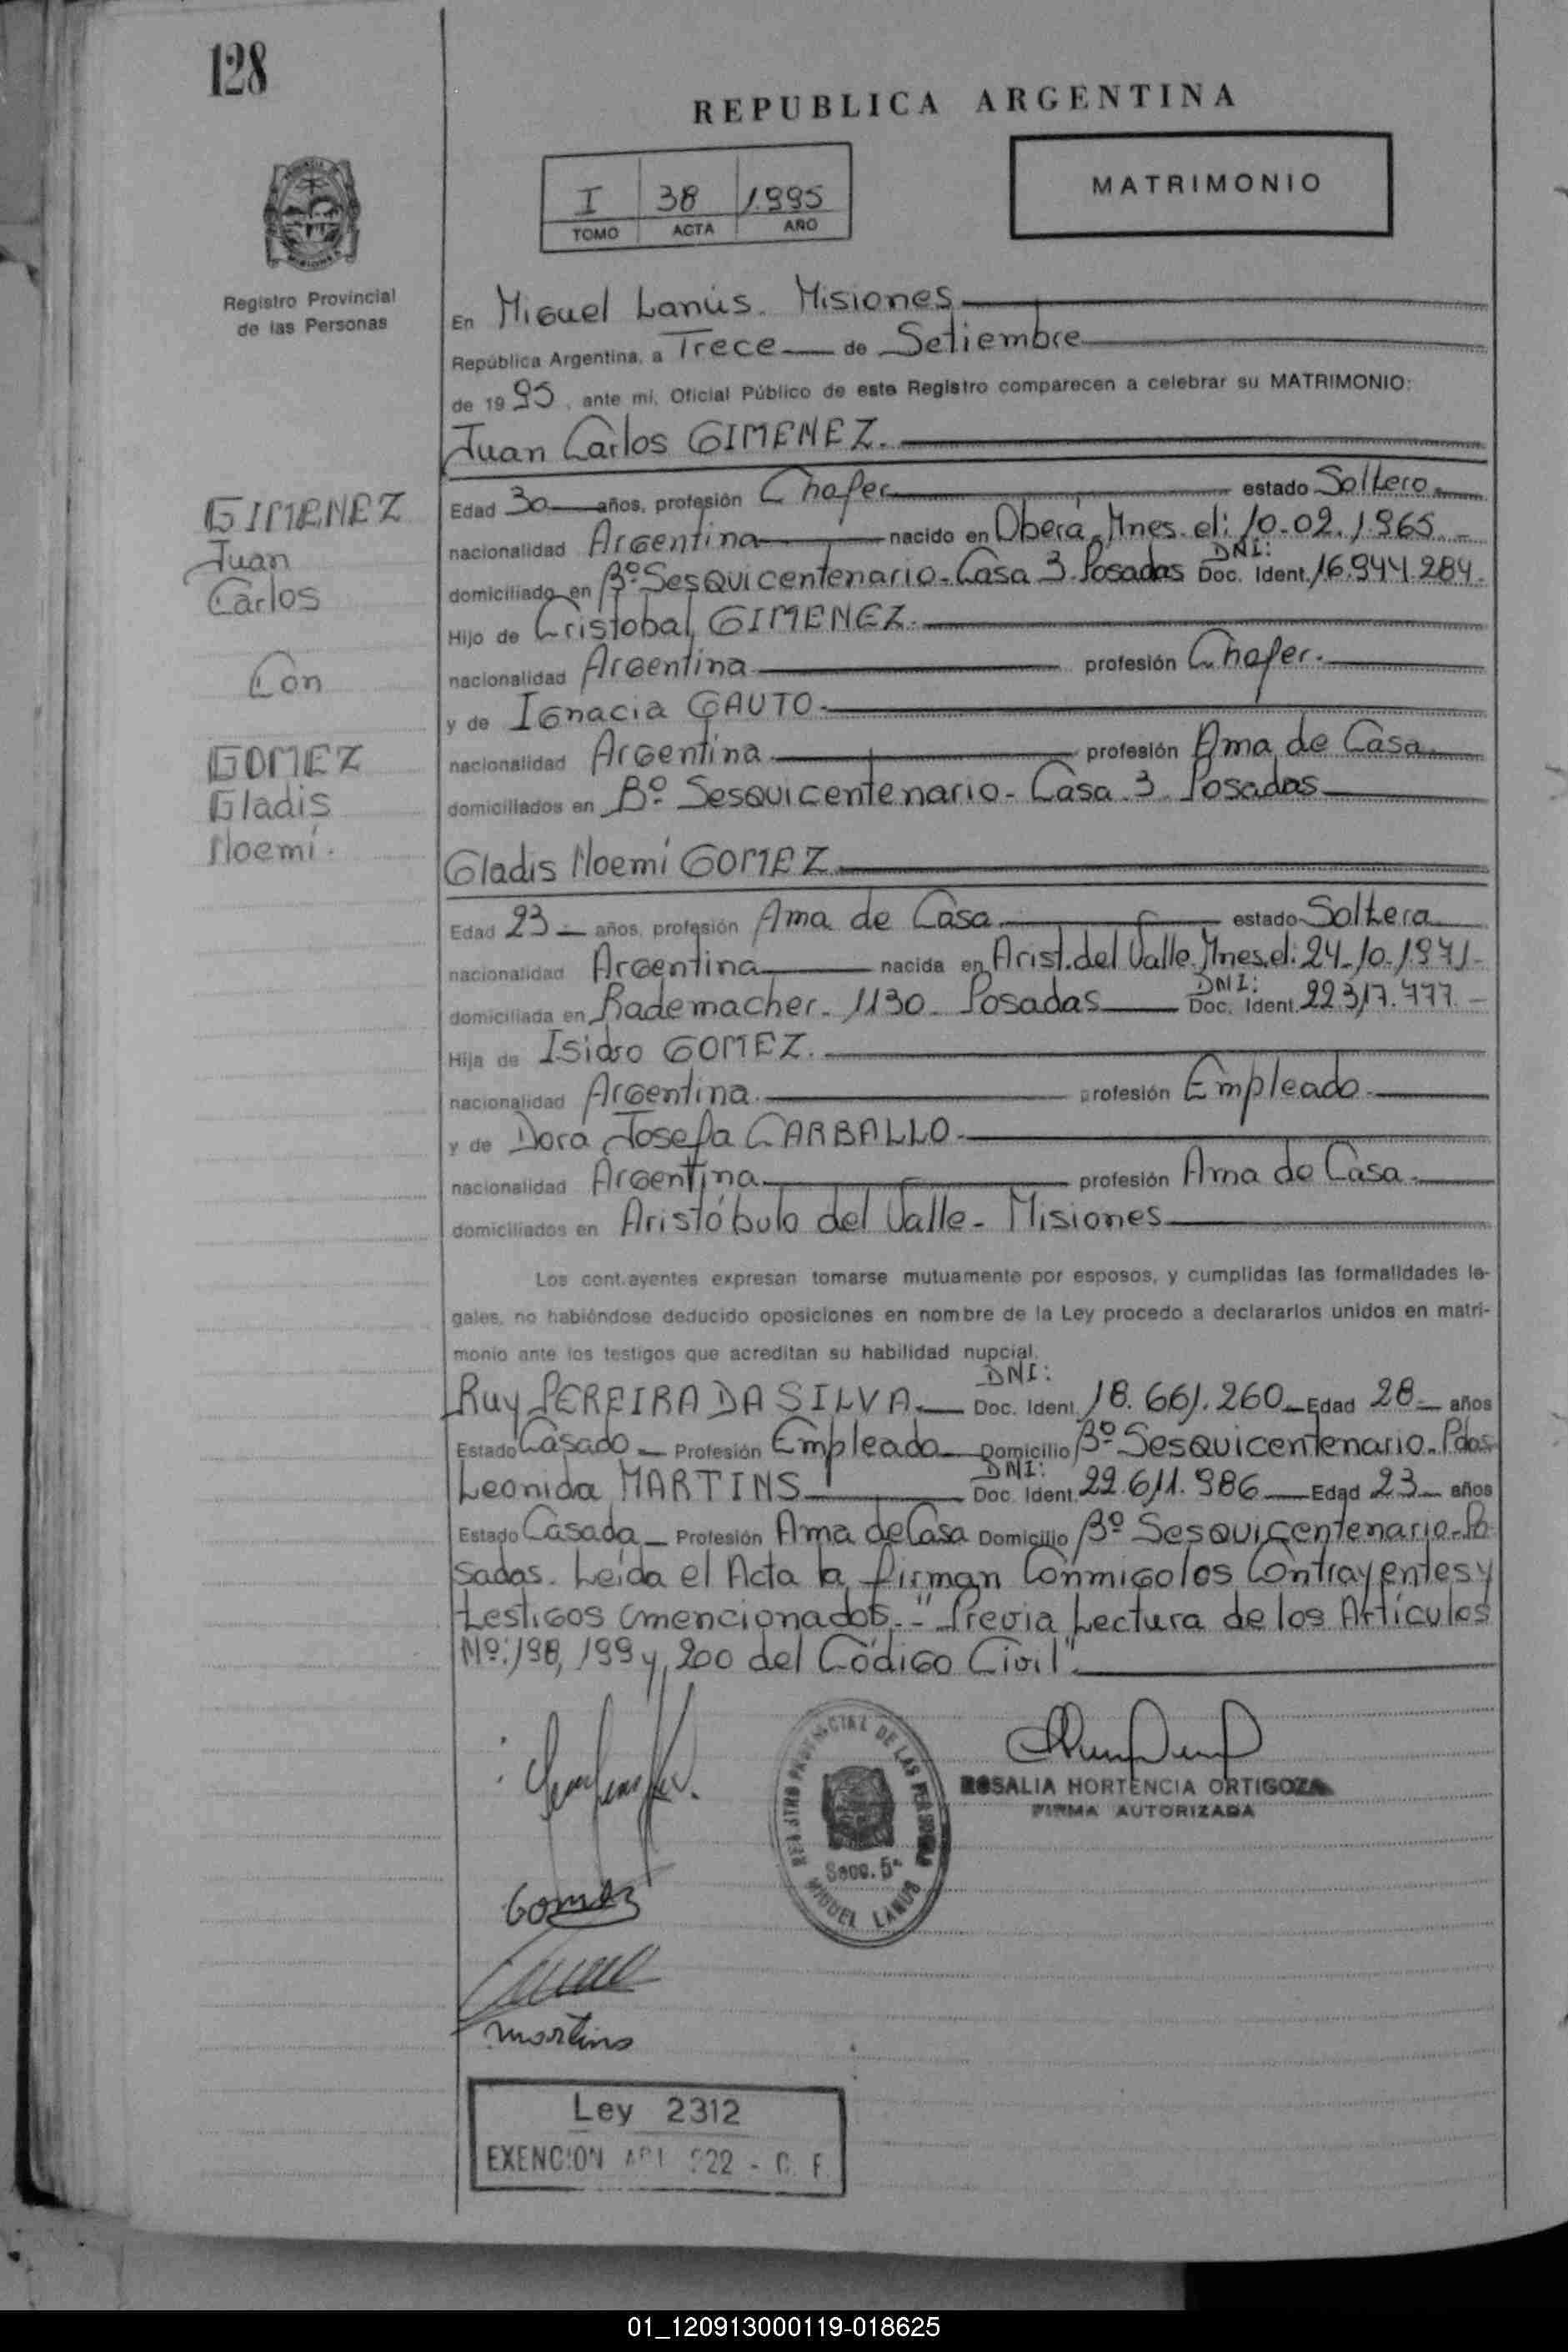 128
REPUBLICA ARGENTINA
I 38 1.995
TOMO ACTA AÑO
MATRIMONIO
Registro Provincial
de las Personas
En Miguel Lanús. Misiones
República Argentina, a Trece de Setiembre
de 1995, ante mí, Oficial Público de este Registro comparecen a celebrar su MATRIMONIO:
Juan Carlos GIMENEZ.
GIMENEZ
Juan
Carlos
Con
GOMEZ
Gladis
Noemí.
Edad 30 años, profesión Chofer estado Soltero
nacionalidad Argentina nacido en Oberá, Mnes. el: 10-02.1.965.
domiciliado en Bº Sesquicentenario-Casa 3-Posadas DNI: Doc. Ident. 16.944.284.
Hijo de Cristobal GIMENEZ.
nacionalidad Argentina profesión Chofer.
y de Ignacia GAUTO.
nacionalidad Argentina profesión Ama de Casa
domiciliados en Bº Sesquicentenario-Casa 3-Posadas
Gladis Noemí GOMEZ
Edad 23 años, profesión Ama de Casa estado Soltera
nacionalidad Argentina nacida en Arist.del Valle.Mnes.el: 24-10-1.971-
domiciliada en Rademacher-1130-Posadas DNI: Doc. Ident. 22.317.777.
Hija de Isidro GOMEZ.
nacionalidad Argentina. profesión Empleado
y de Dora Josefa CARBALLO
nacionalidad Argentina profesión Ama de Casa.
domiciliados en Aristóbulo del Valle- Misiones
Los cont.ayentes expresan tomarse mutuamente por esposos, y cumplidas las formalidades le-
gales, no habiéndose deducido oposiciones en nombre de la Ley procedo a declararlos unidos en matri-
monio ante los testigos que acreditan su habilidad nupcial.
Ruy PEREIRA DA SILVA. DNI: Doc. Ident. 18.661.260 Edad 28 años
Estado Casado Profesión Empleado Domicilio Bº Sesquicentenario-Pdas
Leonida MARTINS DNI: Doc. Ident. 22.611.986 Edad 23 años
Estado Casada Profesión Ama de Casa Domicilio Bº Sesquicentenario-Po
sadas. Leída el Acta la firman Conmigo los Contrayentes y
testigos mencionados.-"Previa Lectura de los Artículos
Nº:198, 199 y 200 del Código Civil".
REGISTRO PROVINCIAL DE LAS PERSONAS
Secc. 5ª
MIGUEL LANUS
ROSALIA HORTENCIA ORTIGOZA
FIRMA AUTORIZADA
Gomez
Martins
Ley 2312
EXENCION ART. 222 - C. F.
01_120913000119-018625